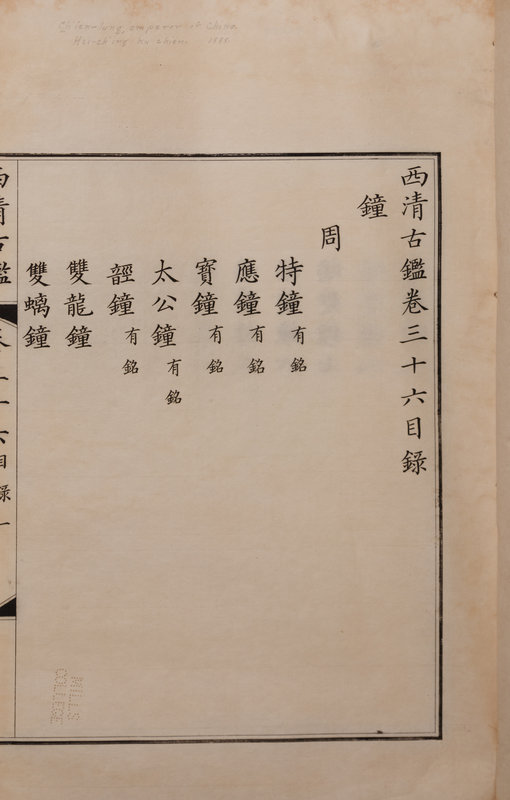 Ch'ien-lung, emperor of China
Hsi-ch'ing ku chien 1888
西清古鑑卷三十六目録
鐘
周
特鐘有銘
應鐘有銘
寳鐘有銘
太公鐘有銘
鐘有銘
雙龍鐘
雙螭鐘
西清古鑑卷三十六目録一
MILLS
COLLEGE